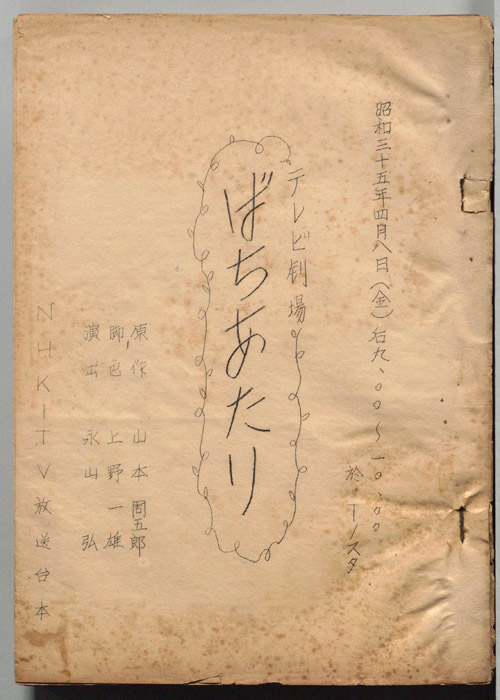 昭和三十五年四月八日(金)后九、〇〇〜一〇、〇〇
於・Tノスタ
テレビ劇場
ばちあたり
原作 山本周五郎
脚色 上野一雄
演出 永山弘
NHKITV放送台本